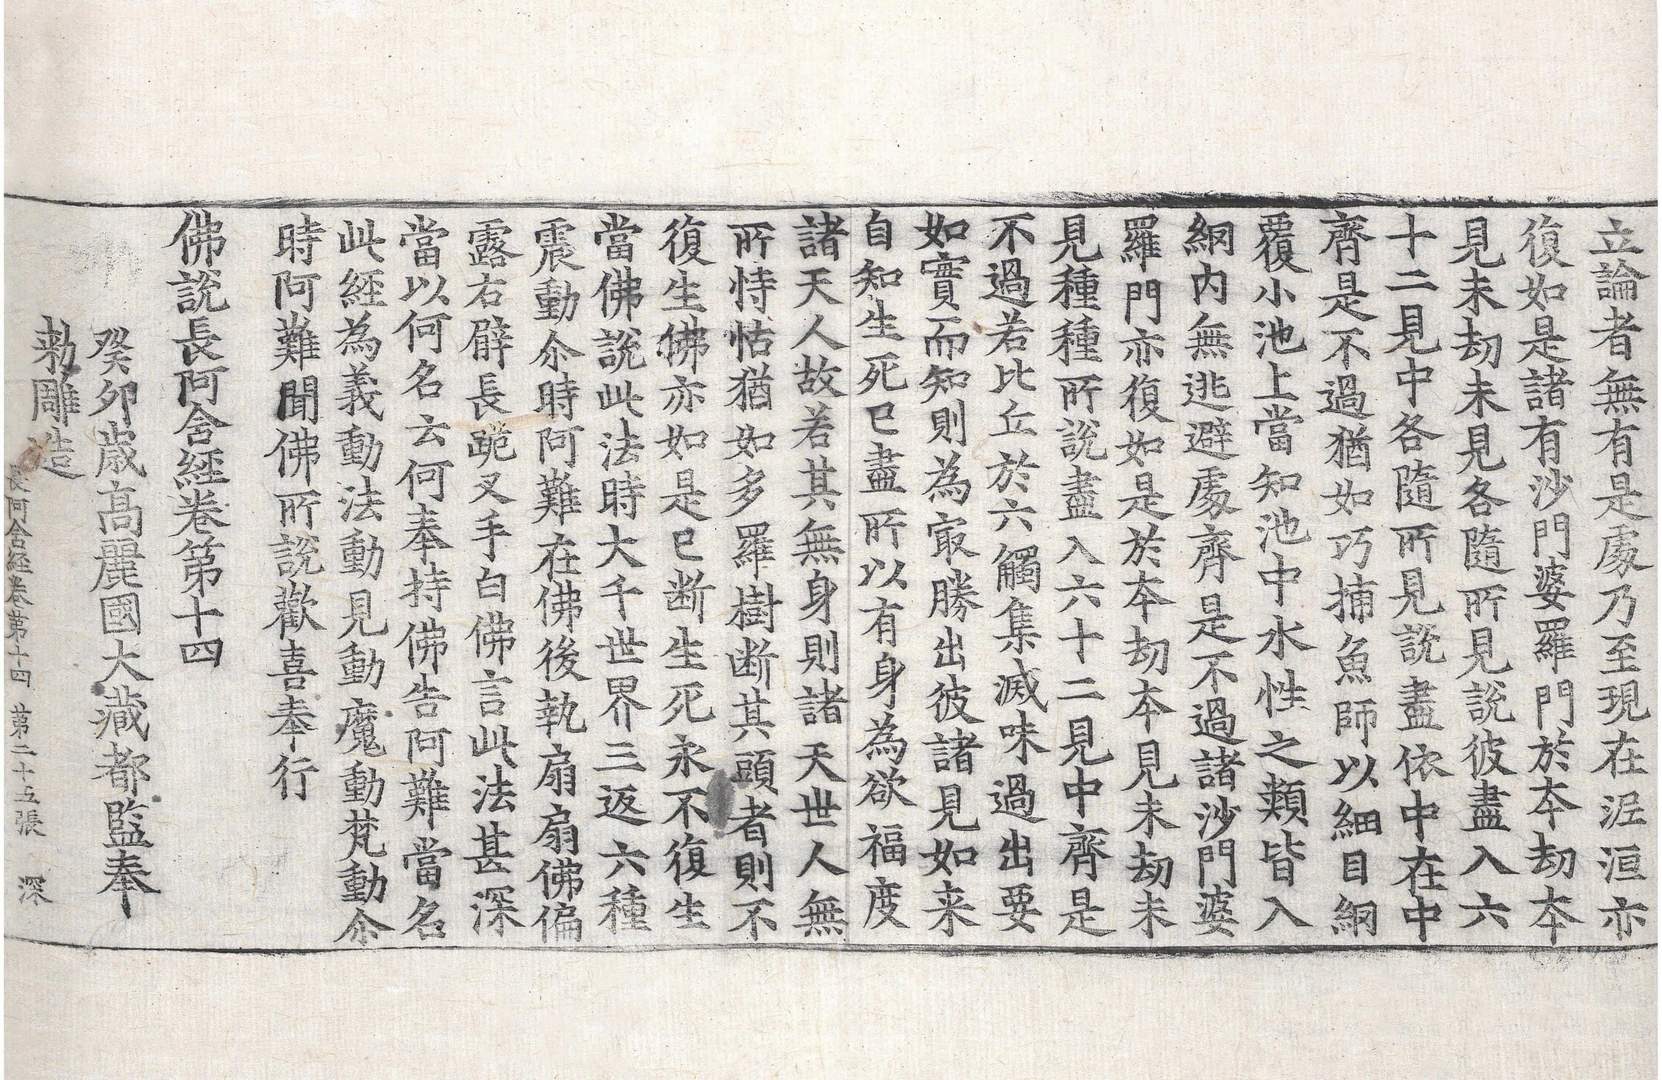 立論者無有是處乃至現在泥洹亦
復如是諸有沙門婆羅門於夲劫夲
見末劫末見各隨所見說彼盡入六
十二見中各隨所見說盡依中在中
齊是不過猶如巧捕魚師以細目網
覆小池上當知池中水性之類皆入
網內無逃避處齊是不過諸沙門婆
羅門亦復如是於夲劫夲見末劫末
見種種所說盡入六十二見中齊是
不過若比丘於六觸集滅味過出要
如實而知則為㝡勝出彼諸見如来
自知生死已盡所以有身為欲福度
諸天人故若其無身則諸天世人無
所恃怙猶如多羅樹断其頭者則不
復生佛亦如是已断生死永不復生
當佛說此法時大千世界三返六種
震動尒時阿難在佛後執扇扇佛偏
露右臂長跪叉手白佛言此法甚深
當以何名云何奉持佛告阿難當名
此經為義動法動見動魔動梵動尒
時阿難聞佛所說歡喜奉行
佛說長阿含經卷第十四
癸卯歲高麗國大藏都監奉
勑雕造
長阿含經卷第十四 第二十五張 深